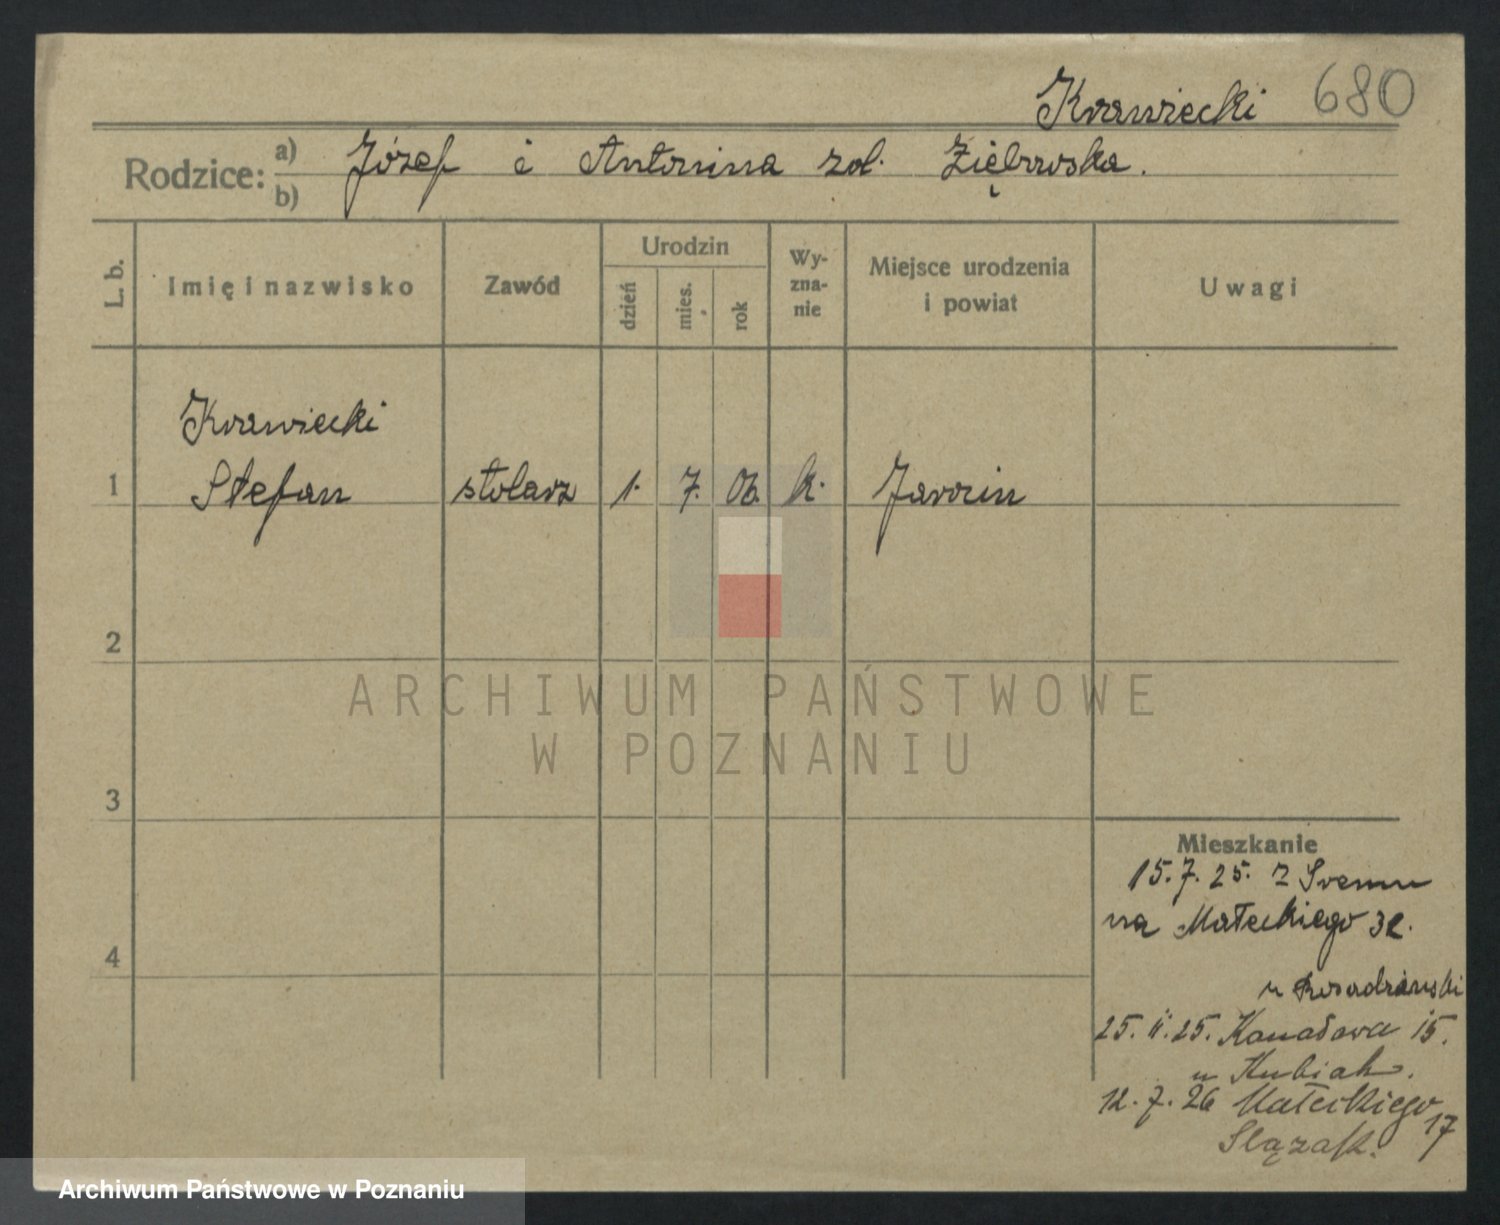 Krawiecki 680
Rodzice: a) Józef i Antonina zol. Ziębowska.
b)
L. b.
Imię i nazwisko
Zawód
Urodzin
dzień
mies.
rok
Wy-
zna-
nie
Miejsce urodzenia
i powiat
Uwagi
Krawiecki
1 Stefan stolarz 1. 7. 06. k. Jarocin
2
3
4
ARCHIWUM PAŃSTWOWE
W POZNANIU
Mieszkanie
15.7.25. z Śremu
na Małeckiego 32.
u
25.11.25. Kanałowa 15.
u Kubiak.
12.7.26 Małeckiego 17
Ślązak.
Archiwum Państwowe w Poznaniu